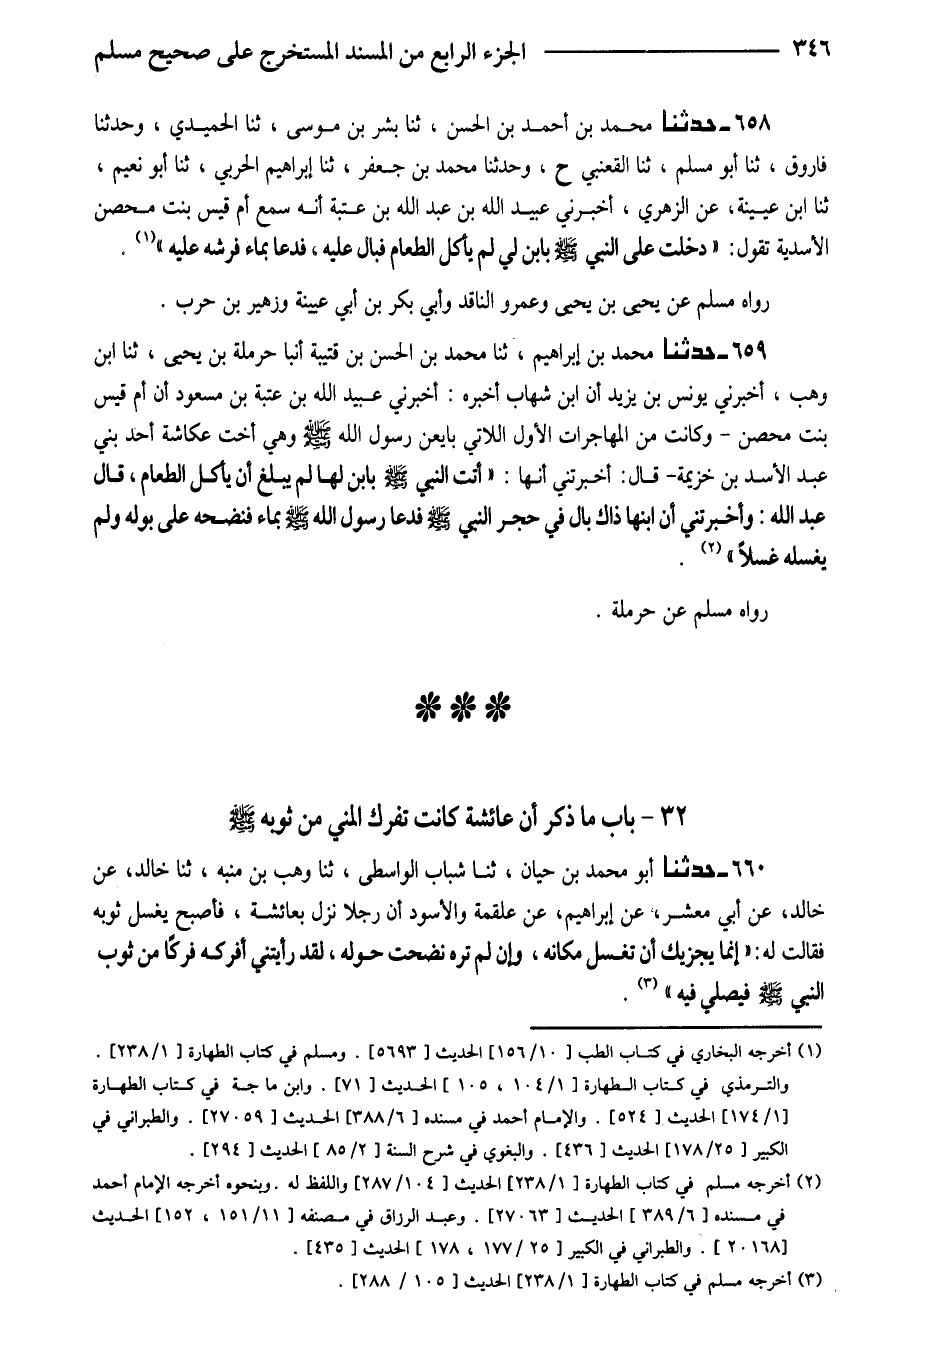 ٣٤٦ ــــــــــــــ الجزء الرابع من المسند المستخرج على صحيح مسلم
٦٥٨ـ حدثنا محمد بن أحمد بن الحسن ، ثنا بشر بن موسى ، ثنا الحميدي ، وحدثنا
فاروق ، ثنا أبو مسلم ، ثنا القعنبي ح ، وحدثنا محمد بن جعفر ، ثنا إبراهيم الحربي ، ثنا أبو نعيم ،
ثنا ابن عيينة، عن الزهري ، أخبرني عبيد الله بن عبد الله بن عتبة أنه سمع أم قيس بنت محصن
الأسدية تقول: « دخلت على النبي ﷺ بابن لي لم يأكل الطعام فبال عليه ، فدعا بماء فرشه عليه »(١) .
رواه مسلم عن يحيى بن يحيى وعمرو الناقد وأبي بكر بن أبي عيينة وزهير بن حرب .
٦٥٩ـ حدثنا محمد بن إبراهيم ، ثنا محمد بن الحسن بن قتيبة أنبا حرملة بن يحيى ، ثنا ابن
وهب ، أخبرني يونس بن يزيد أن ابن شهاب أخبره : أخبرني عبيد الله بن عتبة بن مسعود أن أم قيس
بنت محصن - وكانت من المهاجرات الأول اللاتي بايعن رسول الله ﷺ وهي أخت عكاشة أحد بني
عبد الأسد بن خزيمة- قال: أخبرتني أنها : « أتت النبي ﷺ بابن لها لم يبلغ أن يأكل الطعام ، قال
عبد الله : وأخبرتني أن ابنها ذاك بال في حجر النبي ﷺ فدعا رسول الله ﷺ بماء فنضحه على بوله ولم
يغسله غسلاً » (٢) .
رواه مسلم عن حرملة .
❋ ❋ ❋
٣٢ - باب ما ذكر أن عائشة كانت تفرك المني من ثوبه ﷺ
٦٦٠ـ حدثنا أبو محمد بن حيان ، ثنا شباب الواسطى ، ثنا وهب بن منبه ، ثنا خالد، عن
خالد، عن أبي معشر، عن إبراهيم، عن علقمة والأسود أن رجلا نزل بعائشة ، فأصبح يغسل ثوبه
فقالت له: « إنما يجزيك أن تغسل مكانه ، وإن لم تره نضحت حوله ، لقد رأيتني أفركه فركًا من ثوب
النبي ﷺ فيصلي فيه » (٣) .
(١) أخرجه البخاري في كتاب الطب [ ١٥٦/١٠] الحديث [ ٥٦٩٣] . ومسلم في كتاب الطهارة [ ٢٣٨/١] .
والترمذي في كتاب الطهارة [ ١٠٤/١ ، ١٠٥ ] الحديث [ ٧١] . وابن ماجة في كتاب الطهارة
[١٧٤/١] الحديث [ ٥٢٤] . والإمام أحمد في مسنده [ ٣٨٨/٦] الحديث [ ٢٧٠٥٩] . والطبراني في
الكبير [ ١٧٨/٢٥] الحديث [ ٤٣٦] . والبغوي في شرح السنة [ ٨٥/٢ ] الحديث [ ٢٩٤] .
(٢) أخرجه مسلم في كتاب الطهارة [ ٢٣٨/١] الحديث [ ٢٨٧/١٠٤] واللفظ له . وبنحوه أخرجه الإمام أحمد
في مسنده [ ٣٨٩/٦ ] الحديث [ ٢٧٠٦٣] . وعبد الرزاق في مصنفه [ ١٥١/١١ ، ١٥٢] الحديث
[٢٠١٦٨ ] . والطبراني في الكبير [ ١٧٧/٢٥ ، ١٧٨ ] الحديث [ ٤٣٥] .
(٣) أخرجه مسلم في كتاب الطهارة [ ٢٣٨/١] الحديث [ ١٠٥ / ٢٨٨] .